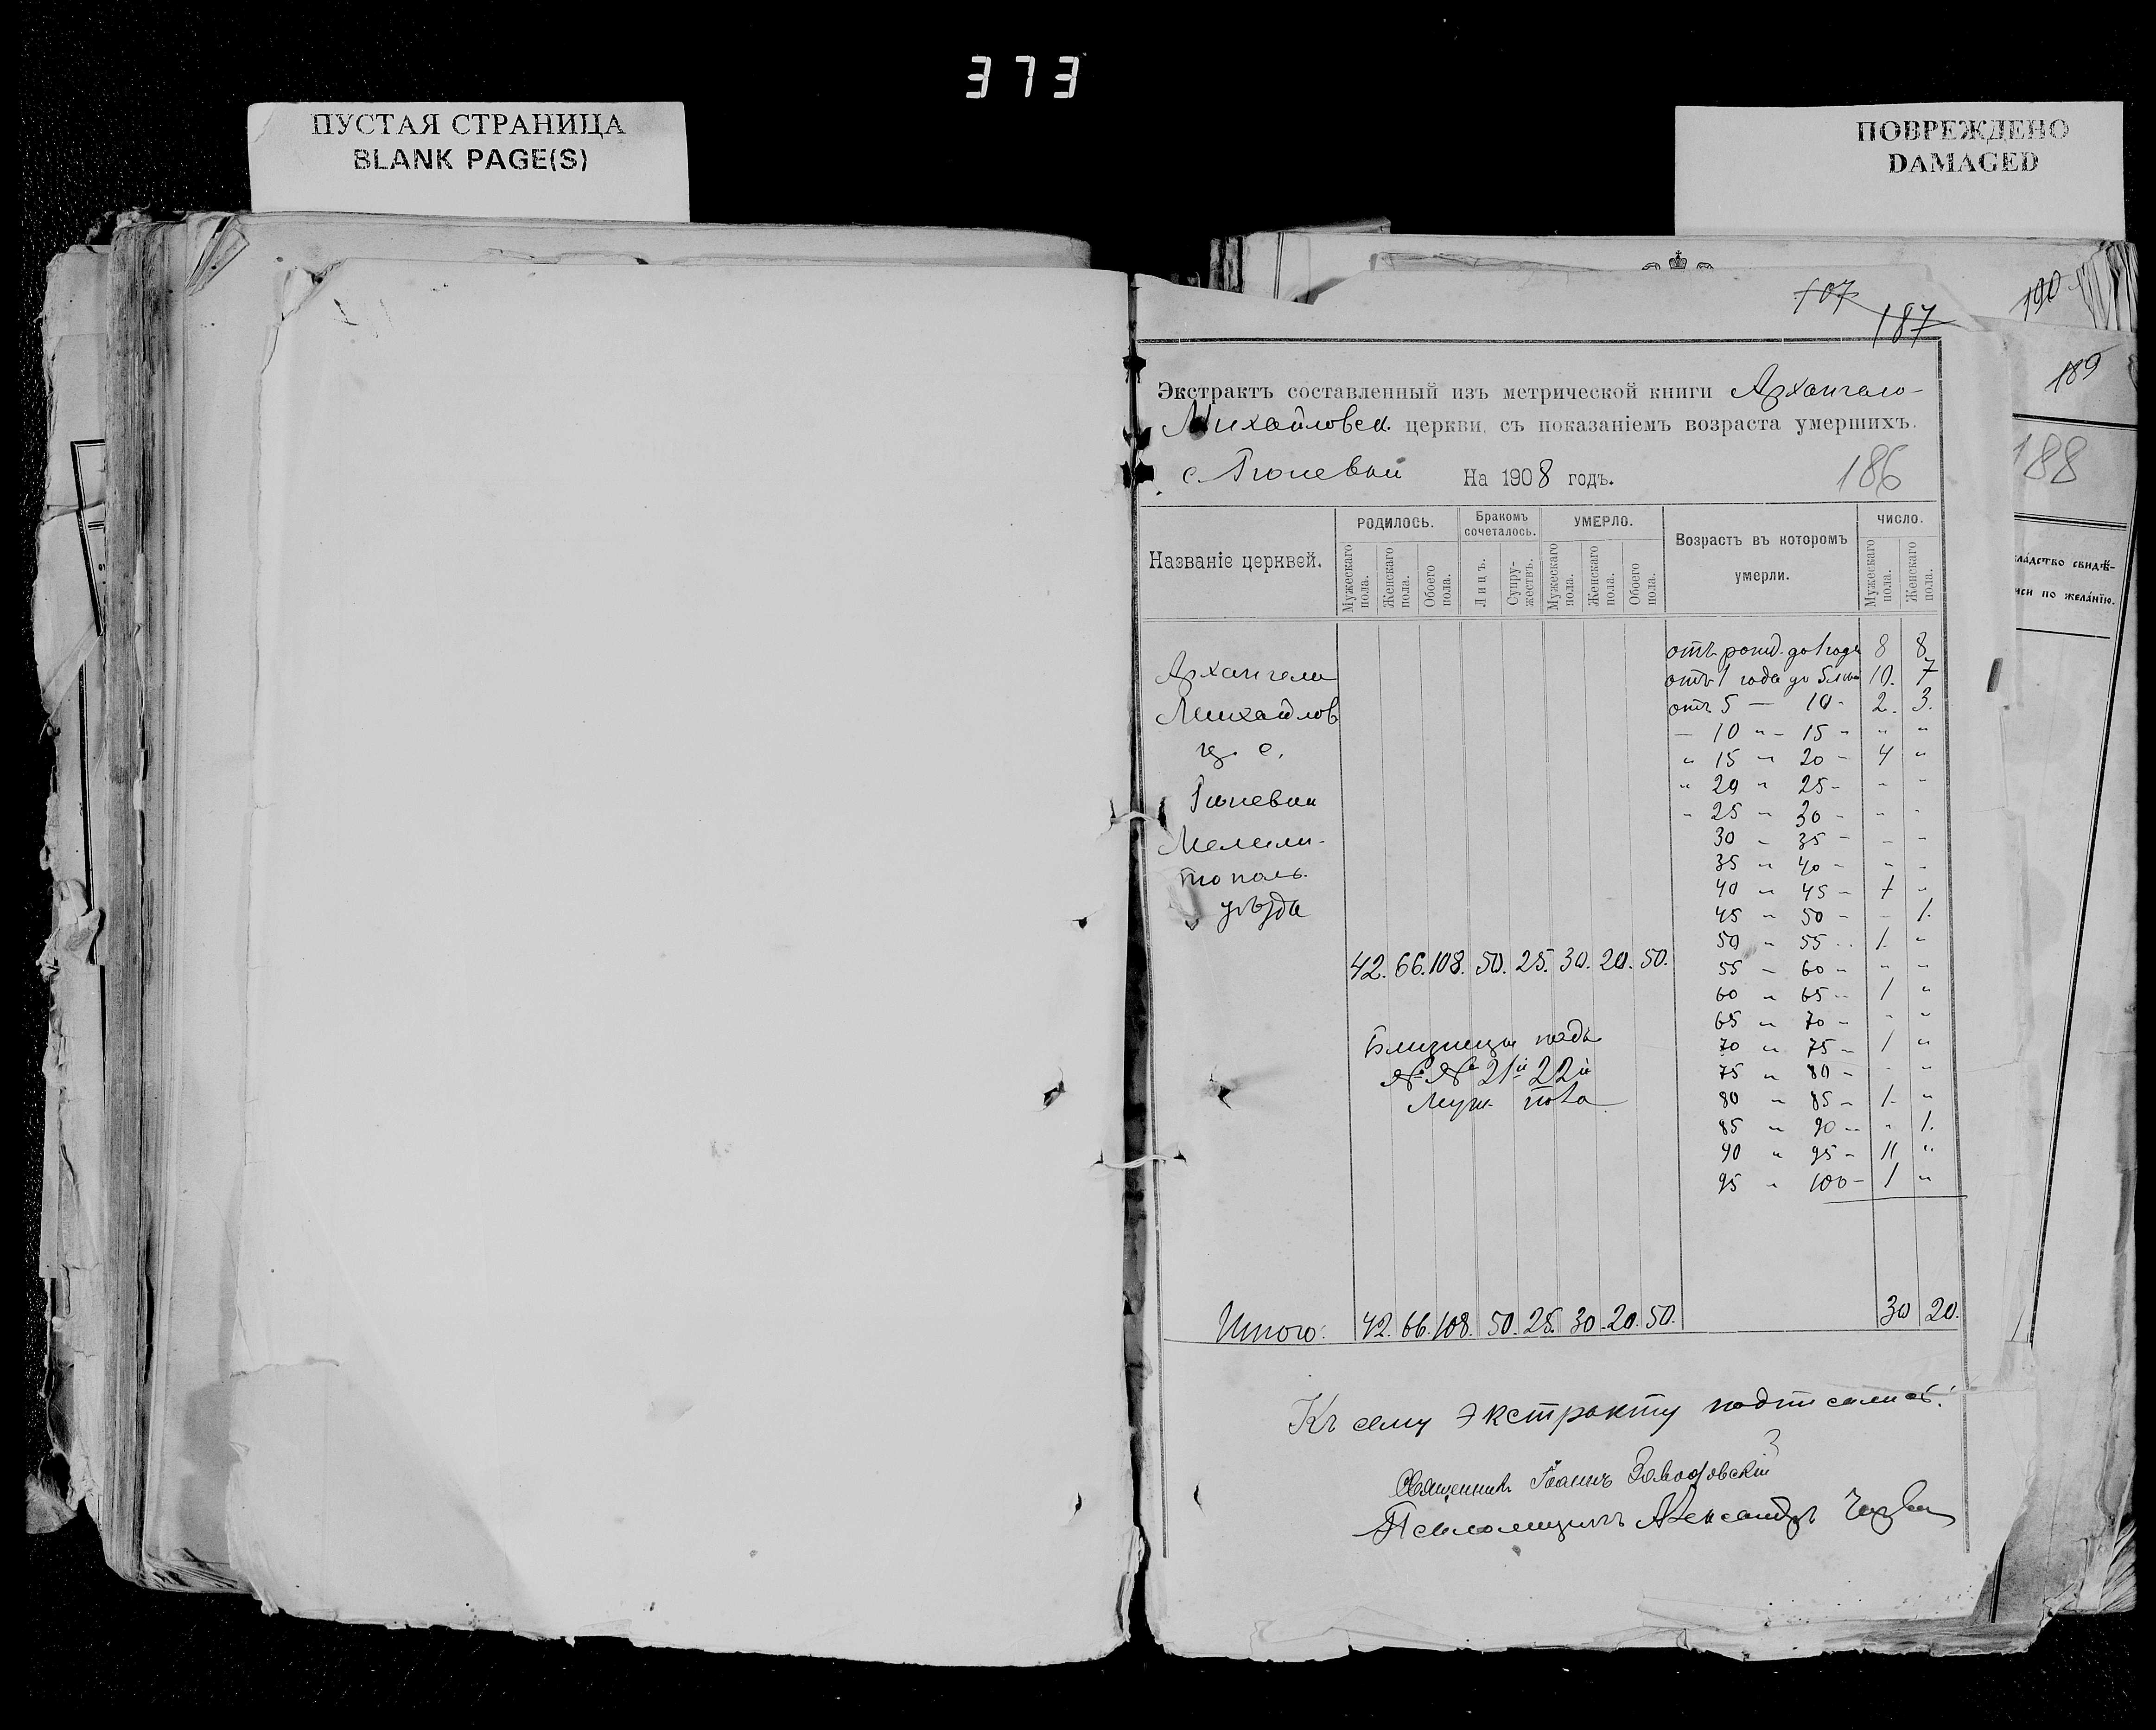 373
ПУСТАЯ СТРАНИЦА
BLANK PAGE(S)
ПОВРЕЖДЕНО
DAMAGED
107
187
190
189
188
Экстрактъ составленный изъ метрической книги Архангело-
Михайловск. церкви, съ показаніемъ возраста умершихъ.
с. Тюневки На 1908 годъ.
186
Названіе церквей.
РОДИЛОСЬ.
Бракомъ сочеталось.
УМЕРЛО.
Возрастъ въ которомъ умерли.
ЧИСЛО.
Мужескаго пола.
Женскаго пола.
Обоего пола.
Лицъ.
Супружествъ.
Мужескаго пола.
Женскаго пола.
Обоего пола.
Мужескаго пола.
Женскаго пола.
отъ рожд. до 1 года 8 8
отъ 1 года до 5 лѣт 10. 7
отъ 5 — 10 - 2. 3.
— 10 " - 15 - " "
" 15 " 20 - 4 "
" 20 " 25 - - -
" 25 " 30 - " -
30 - 35 - - -
35 " 40 - " -
40 " 45 - 1 "
45 " 50 - - 1.
50 " 55 - 1. "
55 — 60 - " "
60 " 65 - 1 "
65 " 70 - - "
70 " 75 - 1 "
75 " 80 - - "
80 " 85 - 1. "
85 " 90 - " 1.
90 " 95 - 11 "
95 " 100 - 1 "
Архангело
Михайлов
ц. с.
Тюневки
Мелели-
тополь.
уѣзда
42. 66. 108. 50. 25. 30. 20. 50.
Близнецы подъ
№ № 21й 22й
муж. пола
Итого: 42. 66. 108. 50. 25. 30. 20. 50. 30 20.
Къ сему экстракту подписались:
Священникъ Іоаннъ
Псаломщикъ Александръ
кладство свидѣ-
иси по желанїю.